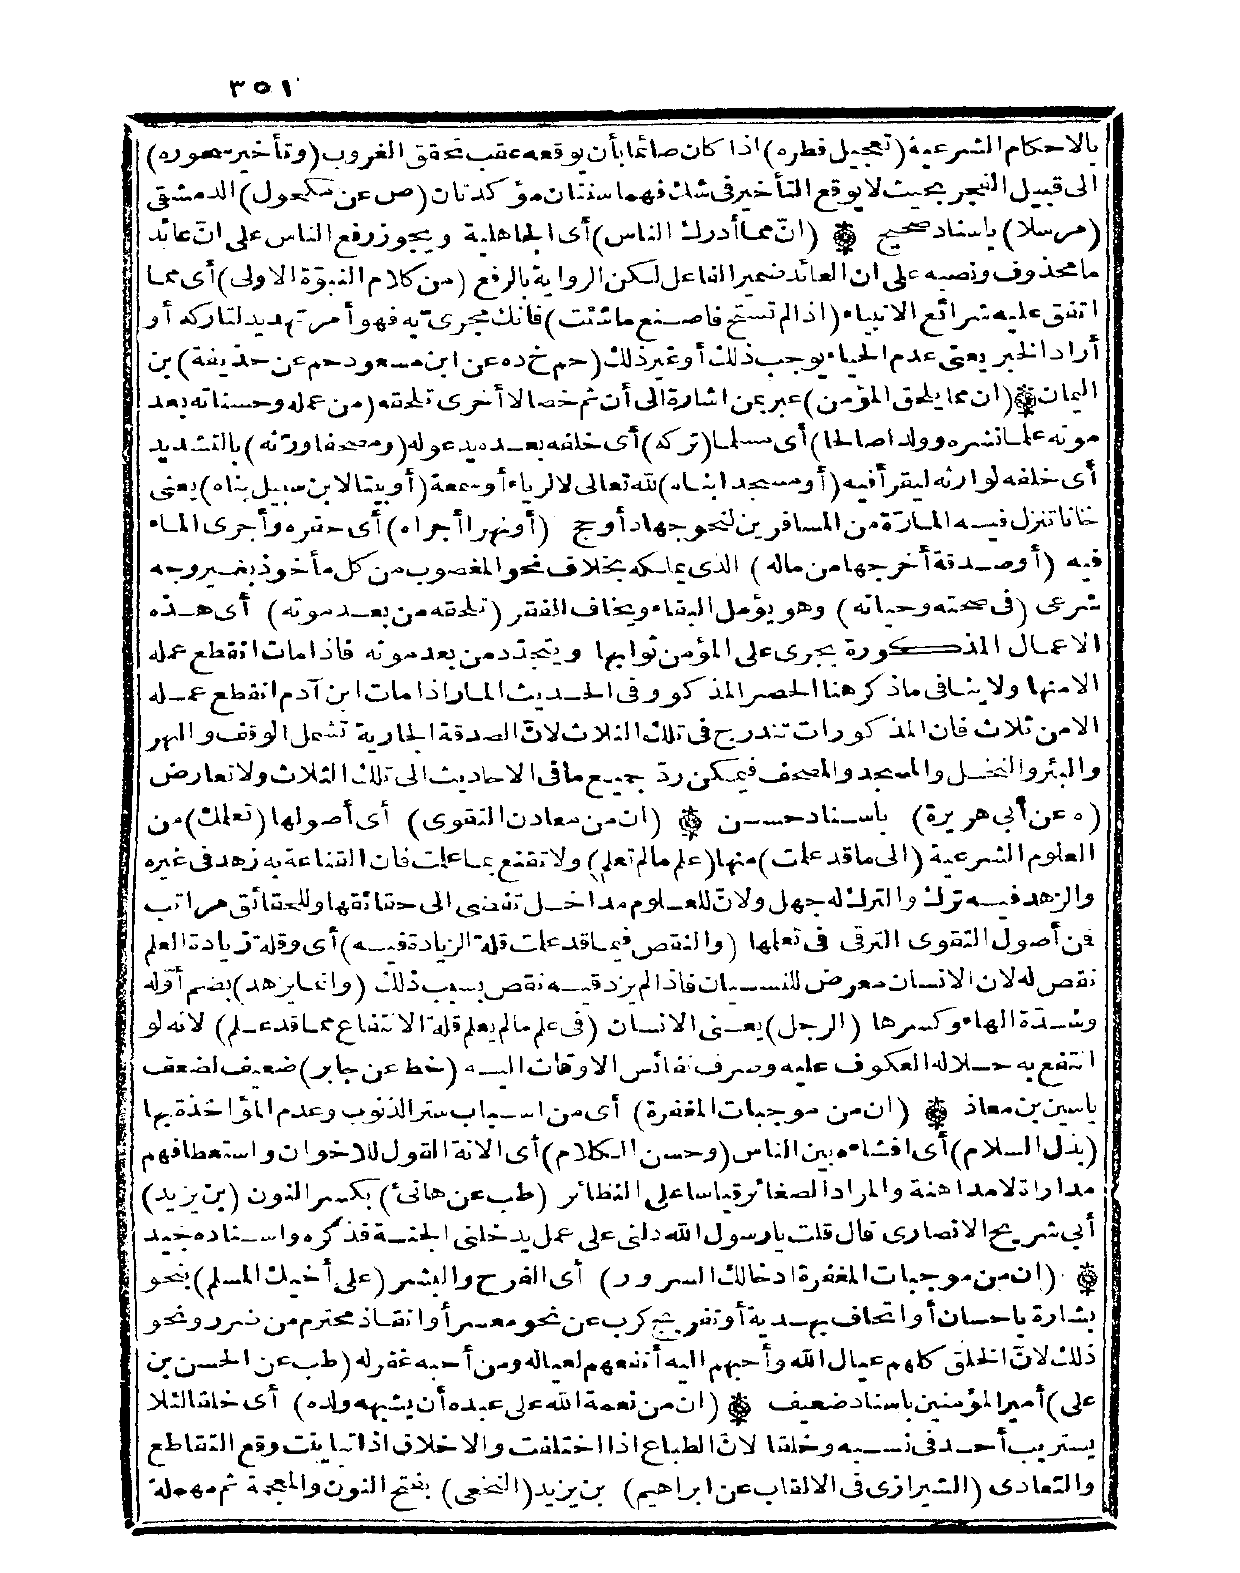 ٣٥١
بالاحكام الشرعية (تعجيل فطره) اذا كان صائما بأن يوقعه عقب تحقق الغروب (وتأخير سحوره)
الى قبيل الفجر بحيث لا يوقع التأخير فى شك فهما سنتان مؤكدتان (ص عن مكحول) الدمشقى
(مرسلا) باسناد صحيح ۞ (انّ مما أدرك الناس) أى الجاهلية ويجوز رفع الناس على انّ عائد
ما محذوف ونصبه على ان العائد ضمير الفاعل لكن الرواية بالرفع (من كلام النبوّة الاولى) أى مما
اتفق عليه شرائع الانبياء (اذا لم تستح فاصنع ما شئت) فانك مجزىّ به فهو أمر تهديد لتاركه أو
أراد الخبر يعنى عدم الحياء يوجب ذلك أو غير ذلك (حم خ د ه عن ابن مسعود حم عن حذيفة) بن
اليمان ۞ (ان مما يلحق المؤمن) عبر بمن اشارة الى أن ثم خصالا أخرى تلحقه (من عمله وحسناته بعد
موته علما نشره وولدا صالحا) أى مسلما (تركه) أى خلفه بعده يدعو له (ومصحفا ورّثه) بالتشديد
أى خلفه لوارثه ليقرأ فيه (أو مسجدا بناه) لله تعالى لا لرياء أو سمعة (أو بيتا لابن سبيل بناه) يعنى
خانا تنزل فيه المارّة من المسافرين لنحو جهاد أو حج (أو نهرا أجراه) أى حفره وأجرى الماء
فيه (أو صدقة أخرجها من ماله) الذى يملكه بخلاف نحو المغصوب من كل مأخوذ بغير وجه
شرعى (فى صحته وحياته) وهو يؤمل البقاء ويخاف الفقر (تلحقه من بعد موته) أى هذه
الاعمال المذكورة يجرى على المؤمن ثوابها ويتجدد من بعد موته فاذا مات انقطع عمله
الا منها ولا ينافى ما ذكر هنا الحصر المذكور فى الحديث المار اذا مات ابن آدم انقطع عمله
الا من ثلاث فان المذكورات تندرج فى تلك الثلاث لانّ الصدقة الجارية تشمل الوقف والنهر
والبئر والنخل والمسجد والمصحف فيمكن ردّ جميع ما فى الاحاديث الى تلك الثلاث ولا تعارض
(ه عن أبى هريرة) باسناد حسن ۞ (ان من معادن التقوى) أى أصولها (تعلمك) من
العلوم الشرعية (الى ما قد علمت) منها (علم ما لم تعلم) ولا تقنع بما علمت فان القناعة به زهد فى غيره
والزهد فيه ترك والترك له جهل ولانّ للعلوم مداخل تفضى الى حقائقها وللحقائق مراتب
فمن أصول التقوى الترقى فى تعلمها (والنقص فيما قد علمت قلة الزيادة فيه) أى وقلة زيادة العلم
نقص له لان الانسان معرض للنسيان فاذا لم يزد فيه نقص بسبب ذلك (وانما يزهد) بضم أوّله
وشدّة الهاء وكسرها (الرجل) يعنى الانسان (فى علم ما لم يعلم قلة الانتفاع بما قد علم) لانه لو
انتفع به حلا له العكوف عليه وصرف نفائس الاوقات اليه (خط عن جابر) ضعيف لضعف
ياسين بن معاذ ۞ (ان من موجبات المغفرة) أى من اسباب ستر الذنوب وعدم المؤاخذة بها
(بذل السلام) أى افشاءه بين الناس (وحسن الكلام) أى الانة القول للاخوان واستعطافهم
مداراة لا مداهنة والمراد الصغائر قياسا على النظائر (طب عن هانئ) بكسر النون (بن يزيد)
أبى شريح الانصارى قال قلت يا رسول الله دلنى على عمل يدخلنى الجنة فذكره واسناده جيد
۞ (ان من موجبات المغفرة ادخالك السرور) أى الفرح والبشر (على أخيك المسلم) بنحو
بشارة باحسان أو اتحاف بهدية أو تفريج كرب عن نحو معسر أو انقاذ محترم من ضرر ونحو
ذلك لانّ الخلق كلهم عيال الله وأحبهم اليه أنفعهم لعياله ومن أحبه غفر له (طب عن الحسن بن
على) أمير المؤمنين باسناد ضعيف ۞ (ان من نعمة الله على عبده أن يشبهه ولده) أى خلقا لئلا
يستريب أحد فى نسبه وخلقا لانّ الطباع اذا اختلفت والاخلاق اذا تباينت وقع التقاطع
والتعادى (الشيرازى فى الالقاب عن ابراهيم) بن يزيد (النخعى) بفتح النون والمعجمة ثم مهملة